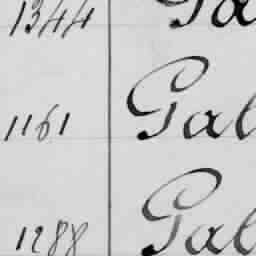 1344 Ga
1161 Gal
1288 Gal